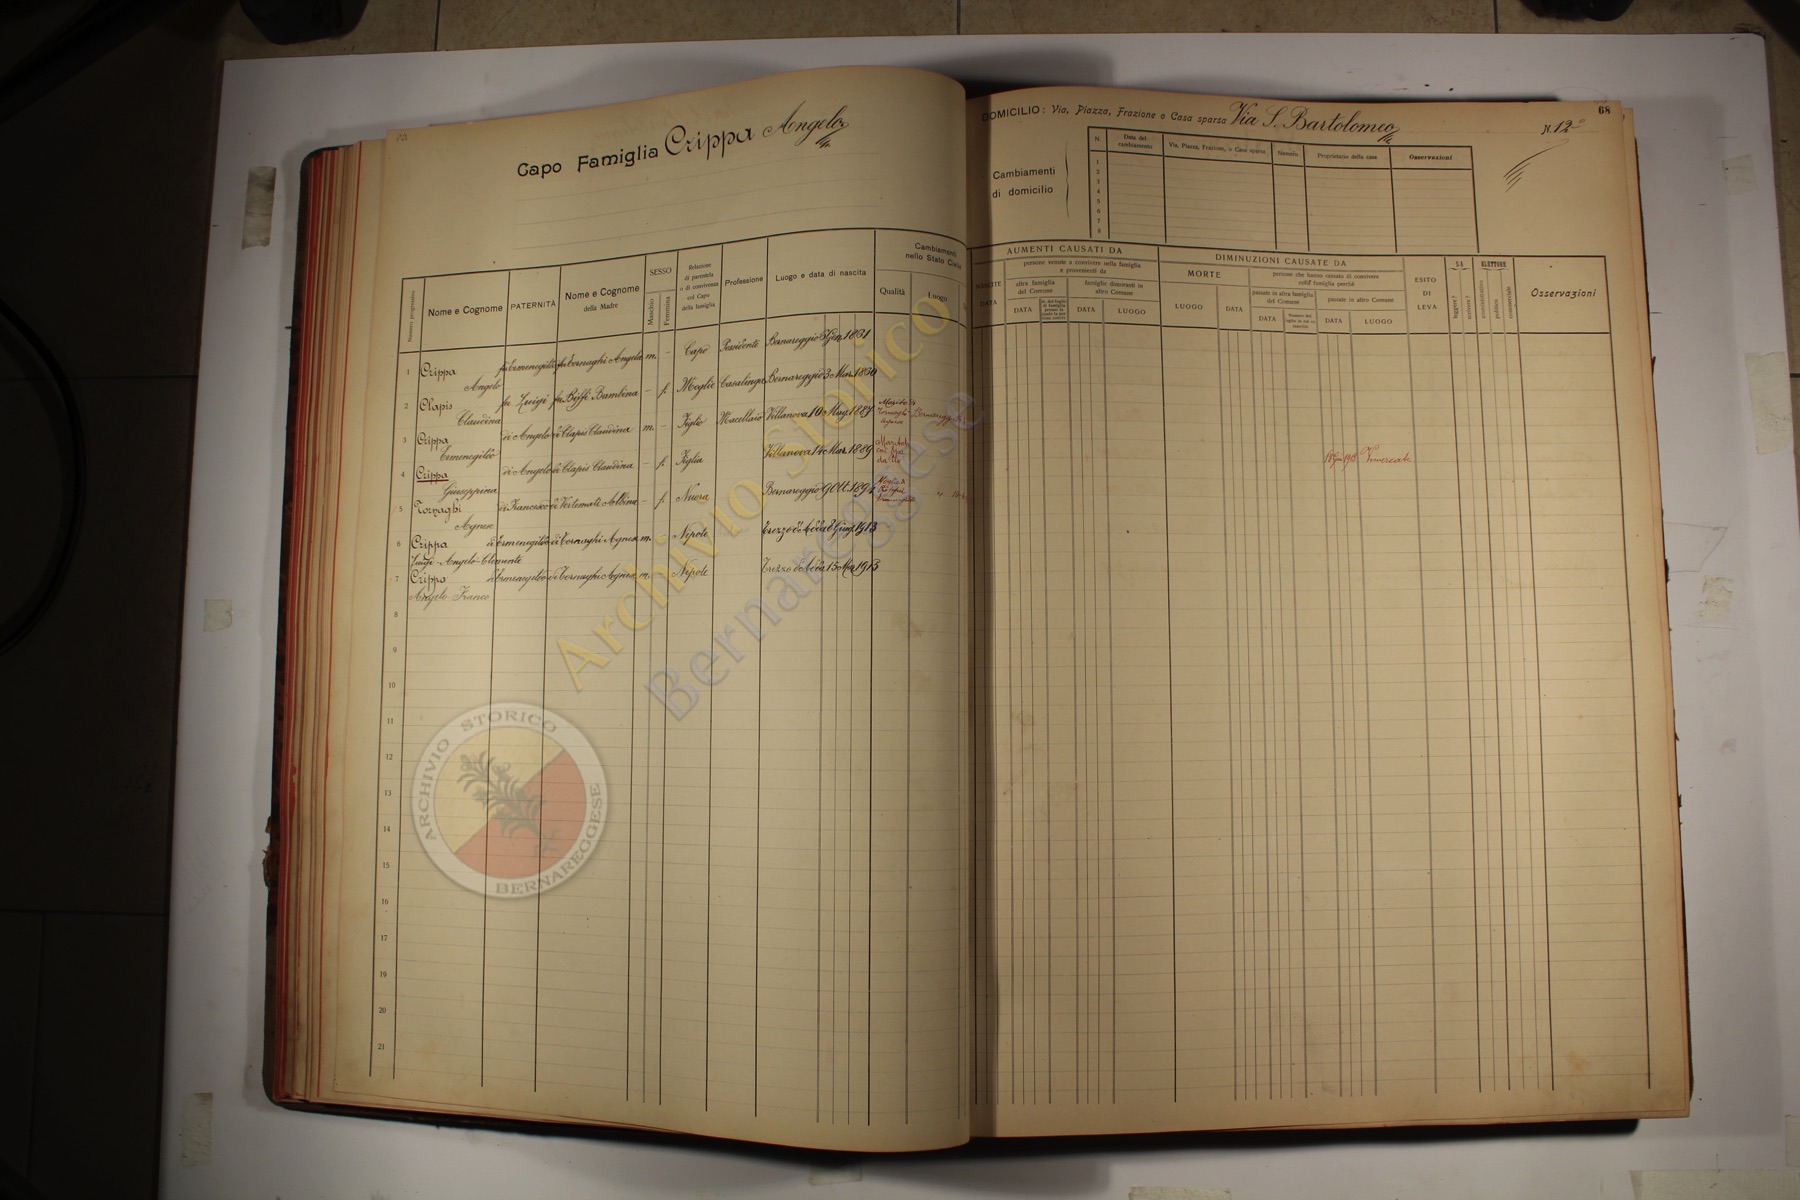 Capo Famiglia Crippa Angelo
DOMICILIO: Via, Piazza, Frazione o Casa sparsa Via S. Bartolomeo N. 12
68
Cambiamenti di domicilio
N. Data del cambiamento Via, Piazza, Frazione, o Casa sparsa Numero Proprietario della casa Osservazioni
1
2
3
4
5
6
7
8
Numero progressivo Nome e Cognome PATERNITÀ Nome e Cognome della Madre SESSO Maschio Femmina Relazione di parentela o di convivenza col Capo della famiglia Professione Luogo e data di nascita Cambiamenti nello Stato Civile Qualità Luogo
AUMENTI CAUSATI DA
NASCITE DATA
persone venute a convivere nella famiglia e provenienti da
altra famiglia del Comune
famiglie dimoranti in altro Comune
DATA DATA LUOGO
DIMINUZIONI CAUSATE DA
MORTE
LUOGO DATA
persone che hanno cessato di convivere nella famiglia perchè
passate in altra famiglia del Comune
passate in altro Comune
DATA DATA LUOGO
ESITO DI LEVA
SA leggere? scrivere?
ELETTORE amministrativo politico commerciale
Osservazioni
1 Crippa Angelo fu Ermenegildo fu Tornaghi Angela m. - Capo Possidente Bernareggio 8 Gen. 1861
2 Clapis Claudina fu Luigi fu Biffi Bambina - f. Moglie Casalinga Bernareggio 3 Mar. 1860
3 Crippa Ermenegildo di Angelo di Clapis Claudina m. - Figlio Macellaio Villanova 10 Mag. 1887 Marito di Tornaghi Agnese Bernareggio
4 Crippa Giuseppina di Angelo di Clapis Claudina - f. Figlia Villanova 14 Mar. 1889 Vimercate
5 Tornaghi Agnese di Francesco di Vertemati Albina - f. Nuora Bernareggio 9 Ott. 1894 Moglie di Crippa Ermenegildo
6 Crippa Luigi-Angelo-Clemente di Ermenegildo di Tornaghi Agnese m. Nipote Trezzo d'Adda 8 Giug. 1913
7 Crippa Angelo Franco di Ermenegildo di Tornaghi Agnese m. Nipote Trezzo d'Adda 15 1913
8
9
10
11
12
13
14
15
16
17
18
19
20
21
Archivio Storico
Bernareggese
ARCHIVIO STORICO
BERNAREGGESE